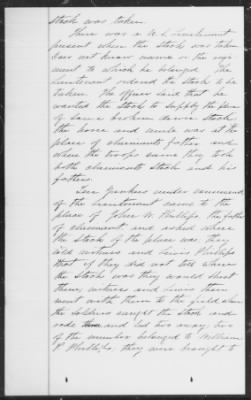 stock was taken.
There was a U.S. Lieutenant
present when the stock was taken
Does not know name or the regi-
ment to which he belonged. The
Lieutenant ordered the stock to be
taken. The officer said that he
wanted the stock to supply the place
of some broken down stock
the horse and mule was at the
place of claimants father and
when the troops came they took
both claimants stock and his
fathers.
The Yankees under command
of the Lieutenant came to the
place of John W. Phillips the father
of claimant and asked where
the stock of the place was, they
told witness and Lewis Phillips
that if they did not tell where
the stock was they would shoot
them, witness and Lewis then
went with them to the field where
the soldiers caught the stock and
rode them and led two away, two
of the number belonged to William
P. Phillips, they were brought to